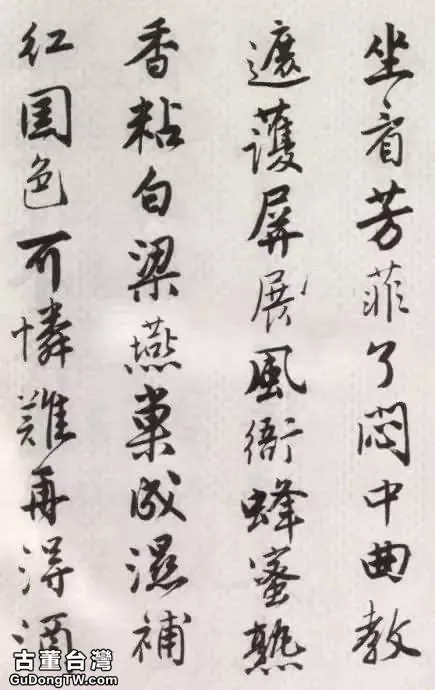 坐看芳菲了悶中曲教
遮護屏展風衙蜂蜜熟
香粘白梁燕巢成濕補
紅國色可憐難再得酒
古董台灣
GuDongTW.com